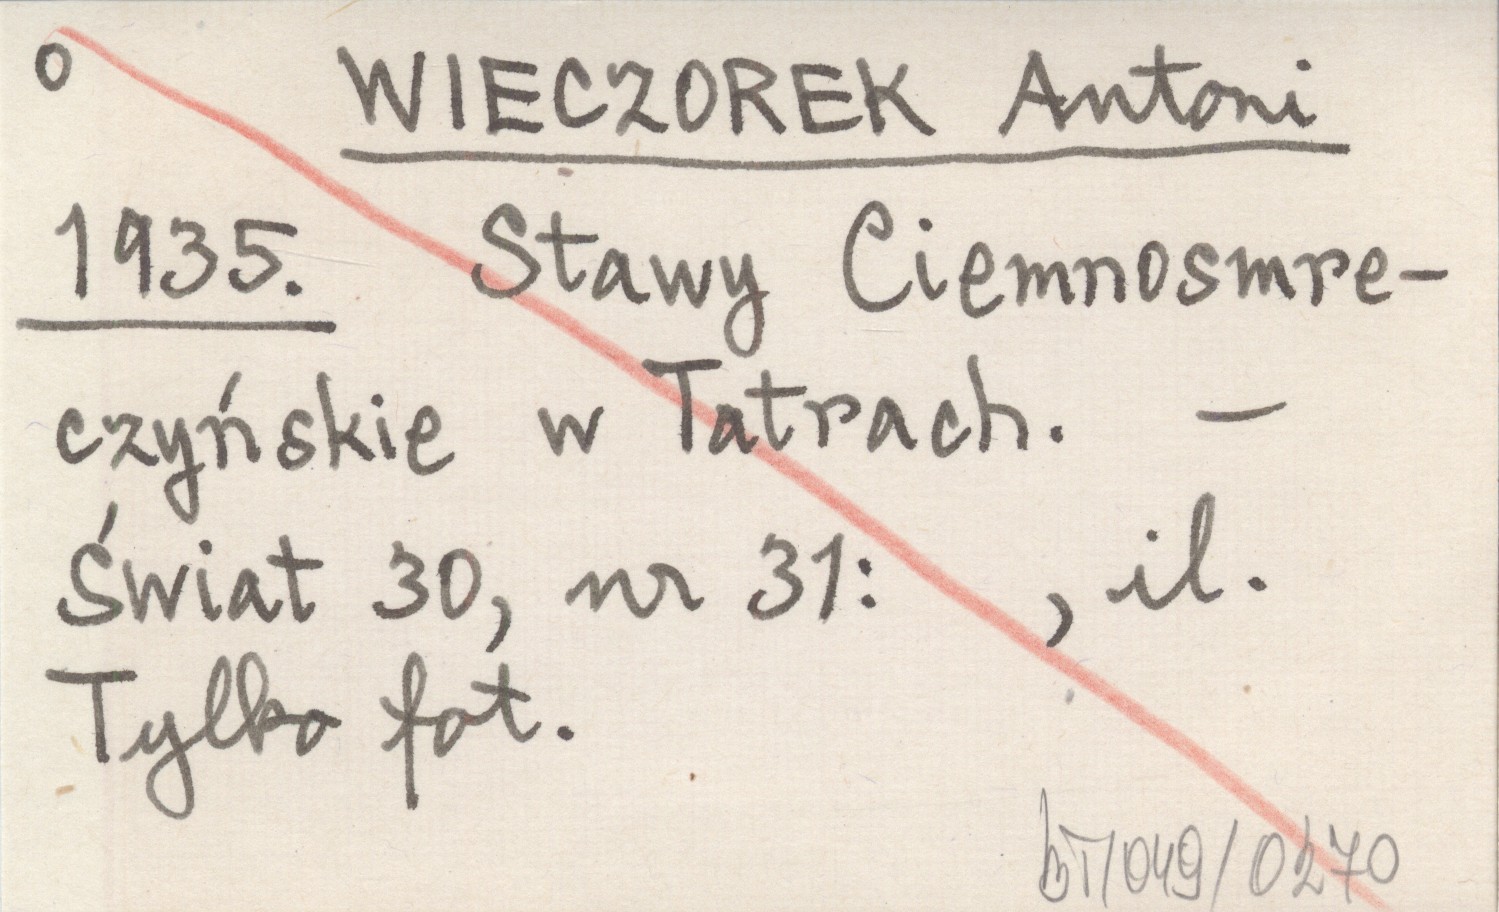 o WIECZOREK Antoni
1935. Stawy Ciemnosmre-
czyńskie w Tatrach. –
Świat 30, nr 31: , il.
Tylko fot.
BT/049/0270